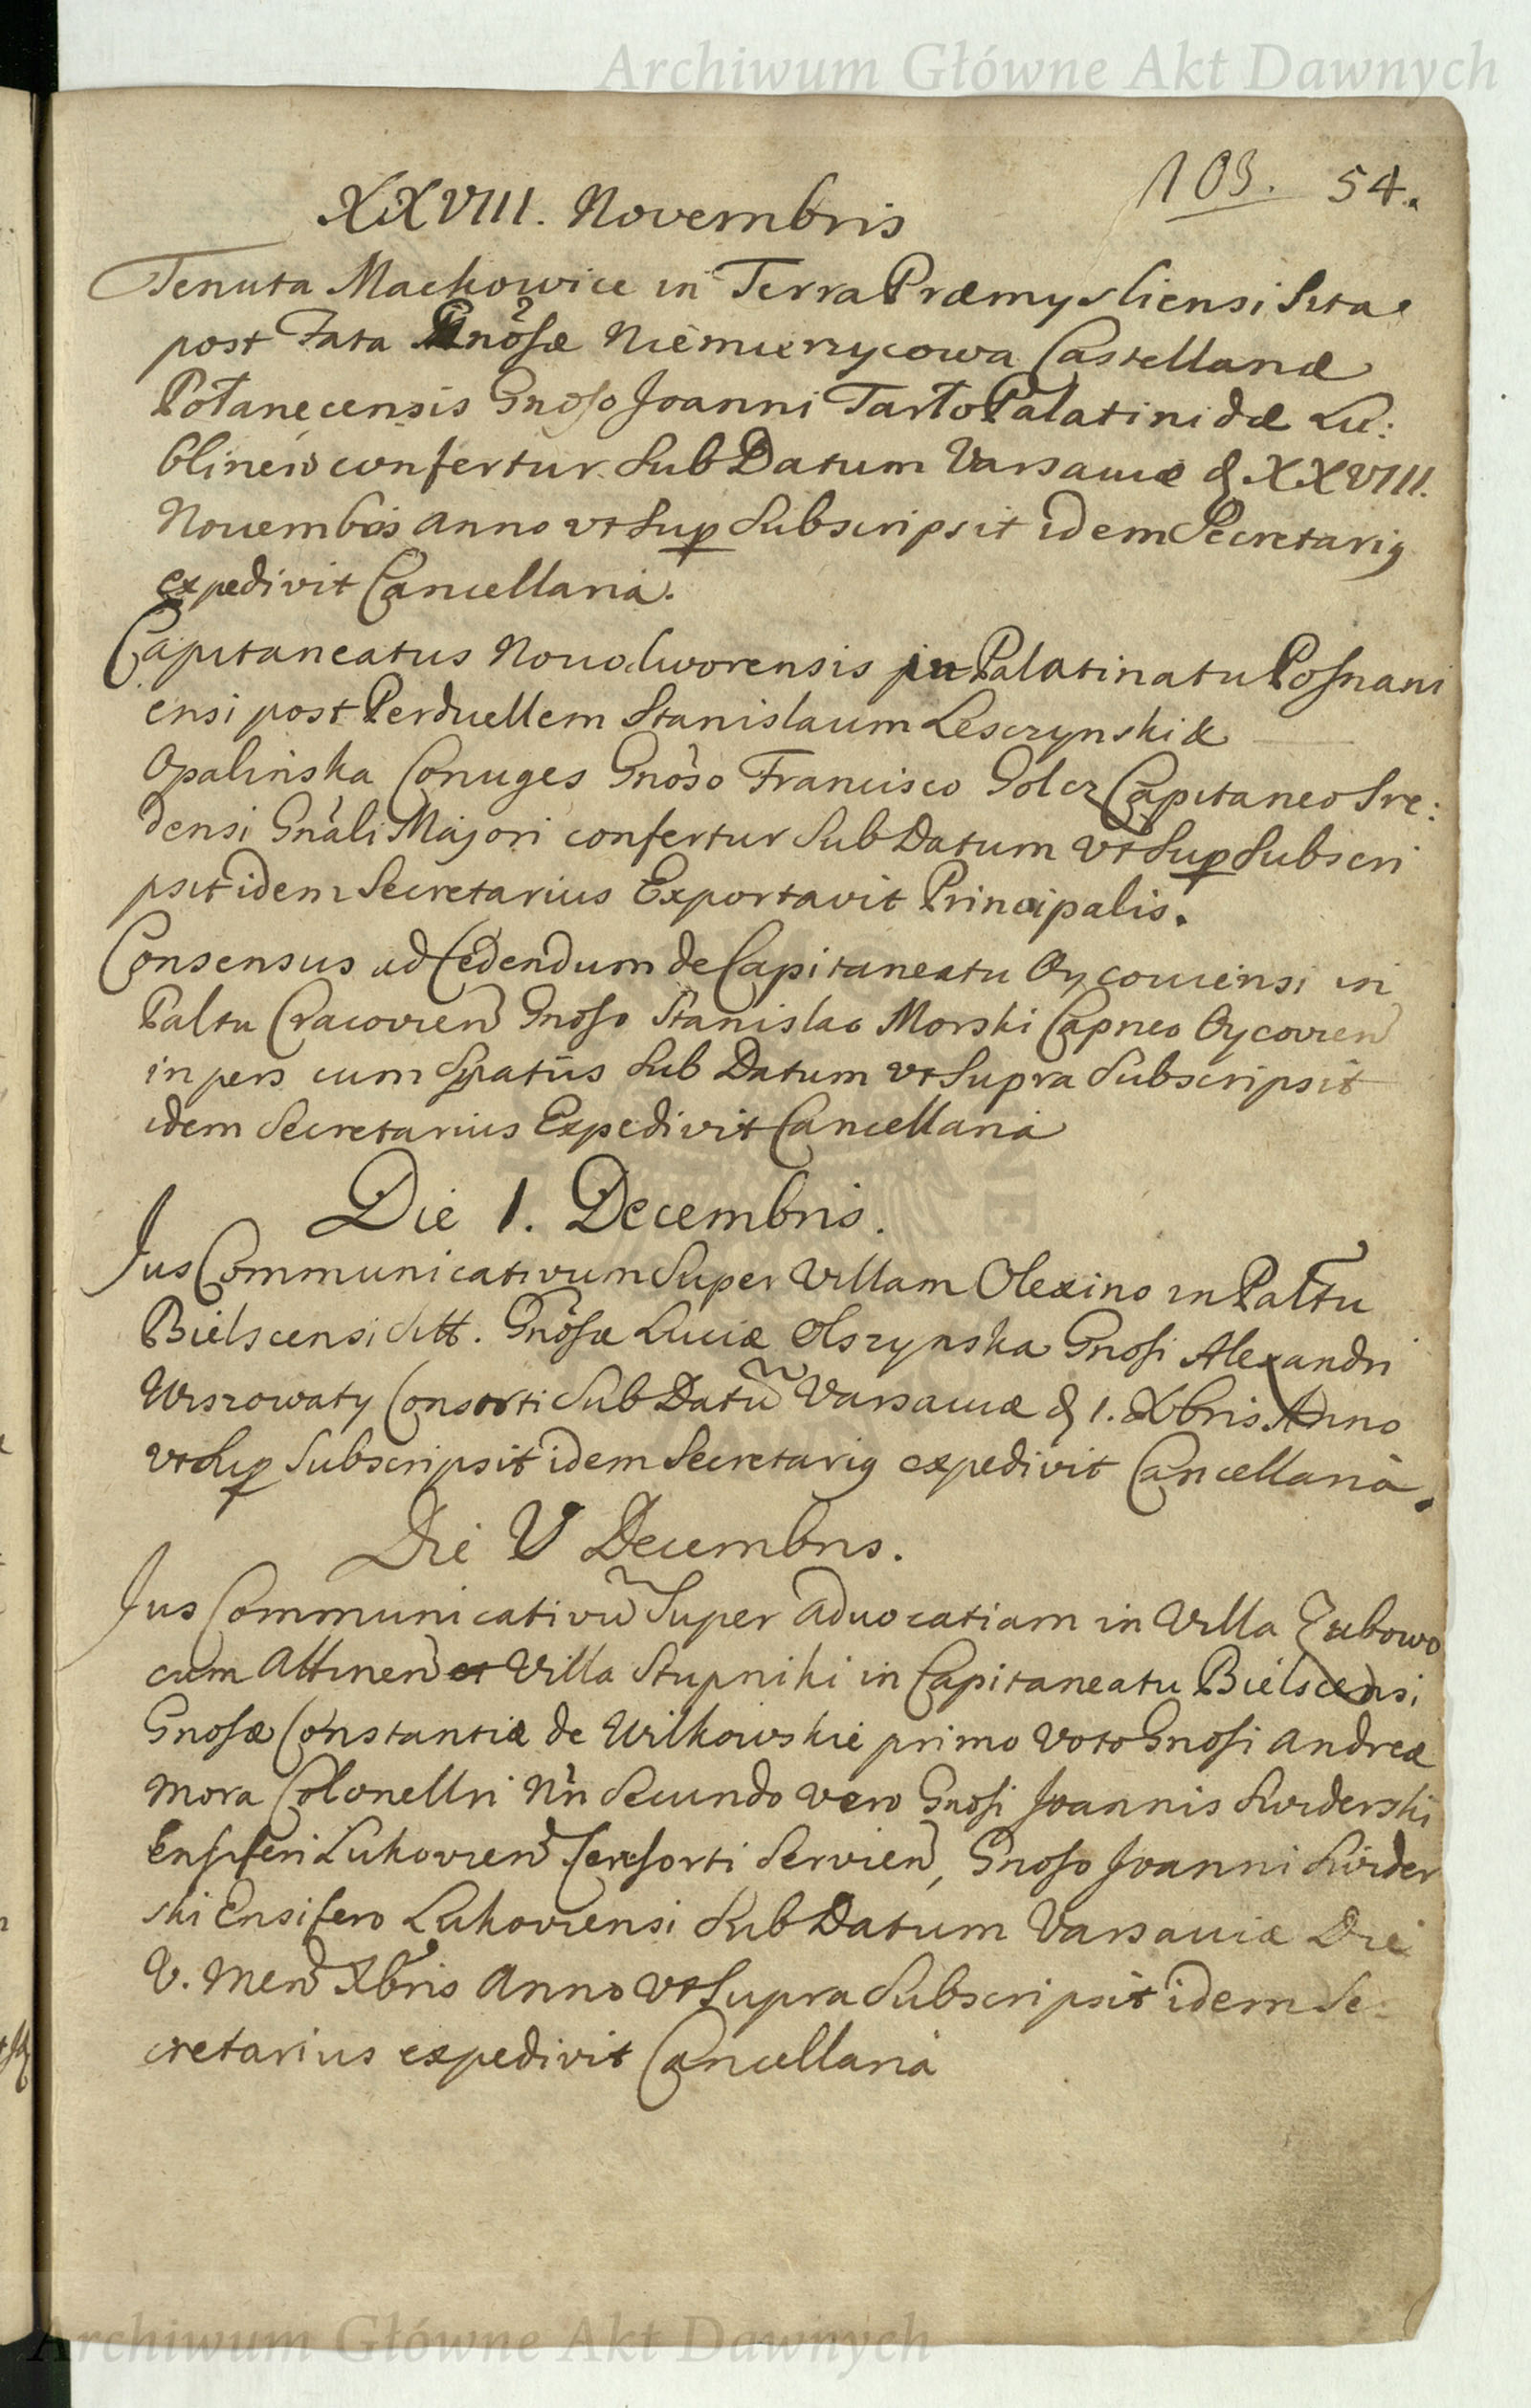 Archiwum Główne Akt Dawnych
103. 54.
XXVIII. Novembris
Tenuta Mackowice in Terra Præmysliensi sita
post Fata Gnosæ Niemierzycowa Castellanæ
Połanecensis Gnoso Joanni Tarło Palatinidæ Lu:
blinen confertur sub Datum Varsaviæ d XXVIII.
Novembris anno vt sup subscripsit idem Secretarig
expedivit Cancellaria.
Capitaneatus Novodworensis in Palatinatu Posnani
ensi post Perduellem Stanislaum Lesczynski &
Opalinska Conuges Gnoso Francisco Golcz Capitaneo Sre:
densi Gnali Majori confertur sub Datum vt sup subscri
psit idem Secretarius Exportavit Principalis.
Consensus ad Cedendum de Capitaneatu Oycoviensi in
Paltu Cracovien Gnoso Stanislao Morski Capneo Oycovien
in pers cum Spatiis sub Datum vt supra subscripsit
idem Secretarius Expedivit Cancellaria
Die 1. Decembris.
Jus Communicativum super Villam Olexino in Paltu
Bielscensi sitt. Gnosæ Luciæ Olszynska Gnosi Alexandri
Wiszowaty Consorti sub Datu Varsaviæ d 1. Xbris Anno
vt sup subscripsit idem Secretarig expedivit Cancellaria.
Die V Decembris.
Jus Communicativu super advocatiam in Villa Zubowo
cum Attinen et Villa Stupniki in Capitaneatu Bielscensi
Gnosæ Constantiæ de Wilkowskie primo voto Gnosi Andreæ
Mora Colonelli Nri secundo vero Gnosi Joannis Swiderski
Ensiferi Lukovien Consorti servien, Gnoso Joanni Swider
ski Ensifero Lukoviensi sub Datum Varsaviæ Die
V. Men Xbris Anno vt supra subscripsit idem Se:
cretarius expedivit Cancellaria
Archiwum Główne Akt Dawnych